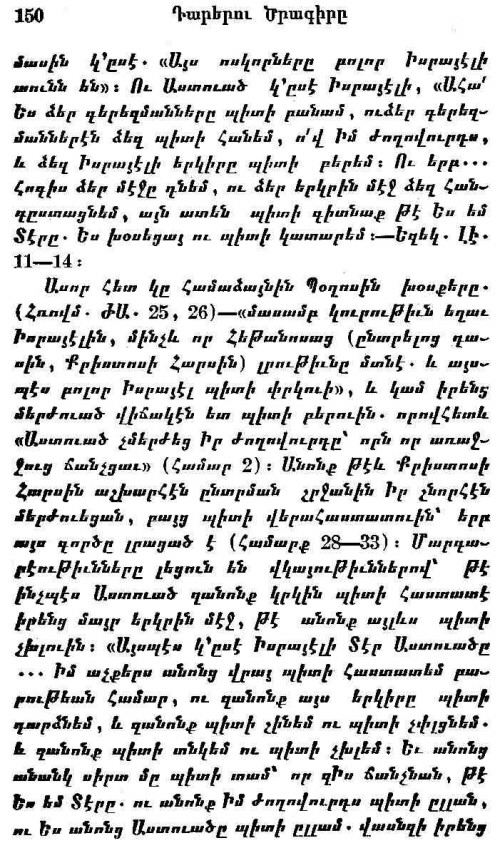 150 Դարերու Ծրագիրը
մասին կ՚ըսէ. «Այս ոսկորները բոլոր Իսրայէլի
տունն են»։ Ու Աստուած կ՚ըսէ Իսրայէլի, «Ահա՛
Ես ձեր գերեզմանները պիտի բանամ, ու ձեր գերեզ–
մաններէն ձեզ պիտի հանեմ, ո՛վ Իմ ժողովուրդս,
և ձեզ Իսրայէլի երկիրը պիտի բերեմ։ Ու երբ...
Հոգիս ձեր մէջը դնեմ, ու ձեր երկրին մէջ ձեզ հան–
գըստացնեմ, այն ատեն պիտի գիտնաք թէ Ես եմ
Տէրը. Ես խօսեցայ ու պիտի կատարեմ։—Եզեկ. ԼԷ.
11—14։
Ասոր հետ կը համաձայնին Պօղոսին խօսքերը.
(Հռովմ. ԺԱ. 25, 26)—«մասամբ կուրութիւն եղաւ
Իսրայէլին, մինչև որ Հեթանոսաց (ընտրելոց դա–
սին, Քրիստոսի Հարսին) լրութիւնը մտնէ. և այս–
պէս բոլոր Իսրայէլ պիտի փրկուի», և կամ իրենց
մերժուած վիճակէն ետ պիտի բերուին. որովհետև
«Աստուած չմերժեց Իր ժողովուրդը՝ որն որ առաջ–
ջուց ճանչցաւ» (համար 2)։ Անոնք թէև Քրիստոսի
Հարսին աշխարհէն ընտրման շրջանին Իր շնորհէն
մերժուեցան, բայց պիտի վերահաստատուին՝ երբ
այս գործը լրացած է (համարք 28—33)։ Մարգա–
րէութիւնները լեցուն են վկայութիւններով՝ թէ
ինչպէս Աստուած զանոնք կրկին պիտի հաստատէ
իրենց մայր երկրին մէջ, թէ անոնք այլևս պիտի
չխլուին։ «Այսպէս կ՚ըսէ Իսրայէլի Տէր Աստուածը
... Իմ աչքերս անոնց վրայ պիտի հաստատեմ բա–
րութեան համար, ու զանոնք այս երկիրը պիտի
դարձնեմ, և զանոնք պիտի շինեմ ու պիտի չփլցնեմ.
և զանոնք պիտի տնկեմ ու պիտի չխլեմ։ Եւ անոնց
անանկ սիրտ մը պիտի տամ՝ որ զիս ճանչնան, թէ
Ես եմ Տէրը. ու անոնք Իմ ժողովուրդս պիտի ըլլան,
ու Ես անոնց Աստուածը պիտի ըլլամ. վասնզի իրենց